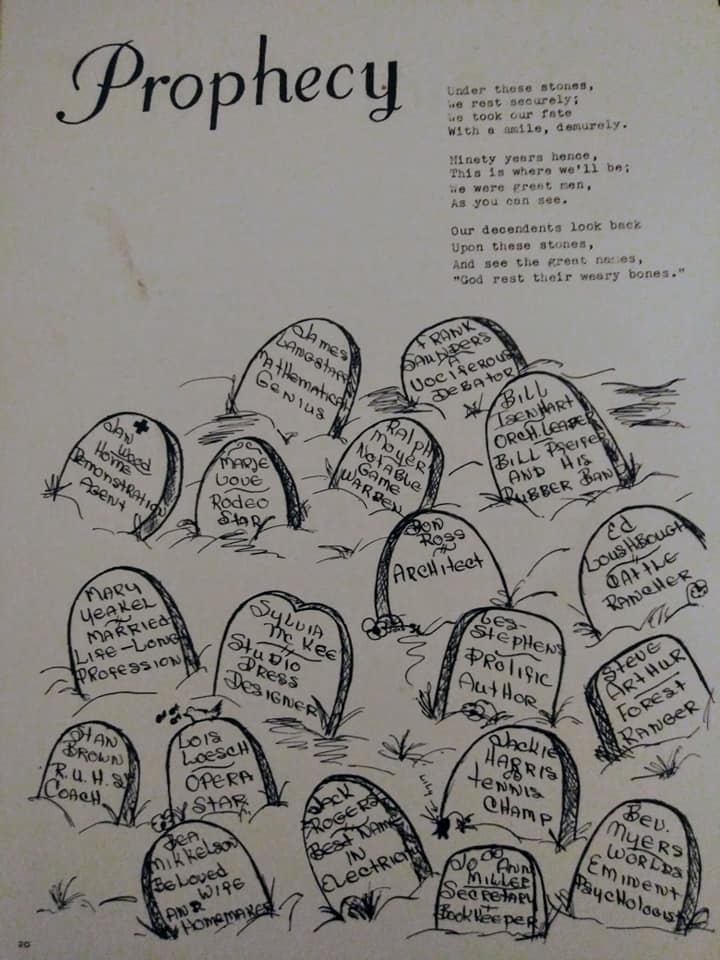 Prophecy
Under these stones,
We rest securely;
We took our fate
With a smile, demurely.
Ninety years hence,
This is where we'll be;
We were great men,
As you can see.
Our decendents look back
Upon these stones,
And see the great names,
"God rest their weary bones."
JAMES
LANGSTAFF
MATHEMATICAL
GENIUS
FRANK
SAUNDERS
A
VOCIFEROUS
DEBATOR
BILL
ISENHART
ORCH. LEADER
BILL PFEIFER
AND HIS
RUBBER BAND
JAN WOOD
HOME
DEMONSTRATION
AGENT
MARJE
LOVE
RODEO
STAR
RALPH
MOYER
NOTABLE
GAME
WARDEN
DON
ROSS
ARCHITECT
ED
LOUSHBOUGH
CATTLE
RANCHER
MARY
YEAKEL
MARRIED
LIFE-LONG
PROFESSION
SYLVIA
MCKEE
STUDIO
DRESS
DESIGNER
LES
STEPHENS
PROLIFIC
AUTHOR
STEVE
ARTHUR
FOREST
RANGER
STAN
BROWN
R.U.H.S
COACH
LOIS
LOESCH
OPERA
STAR
JACK
ROGERS
BEST NAME
IN
ELECTRICITY
JACKIE
HARRIS
TENNIS
CHAMP
BEA
MIKKELSON
BELOVED
WIFE
AND
HOMEMAKER
JO ANN
MILLER
SECRETARY
+
BOOKKEEPER
BEV.
MYERS
WORLDS
EMINENT
PSYCHOLOGIST
20